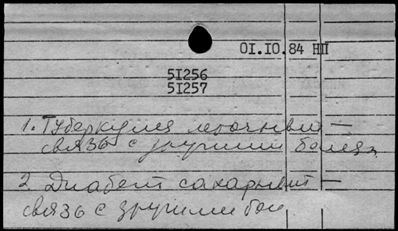 01.10.84 НП
51256
51257
1. Туберкулез легочный —
связь с другими болезн
2. Диабет сахарный —
связь с другими бол